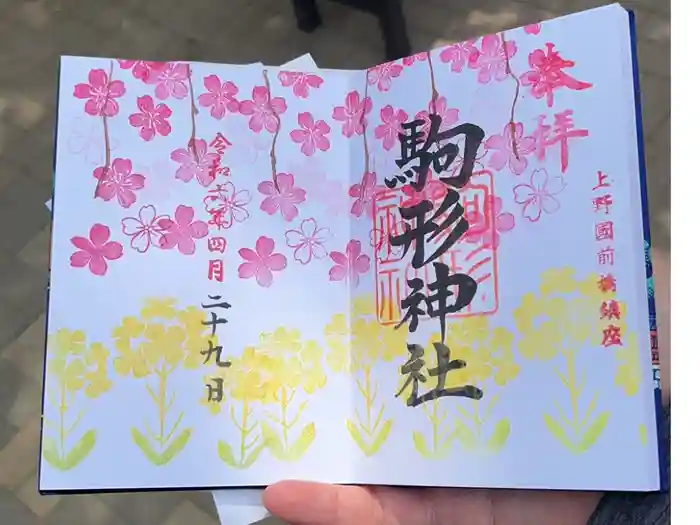 奉拝
上野國前橋鎮座
駒形神社
令和六年四月二十九日